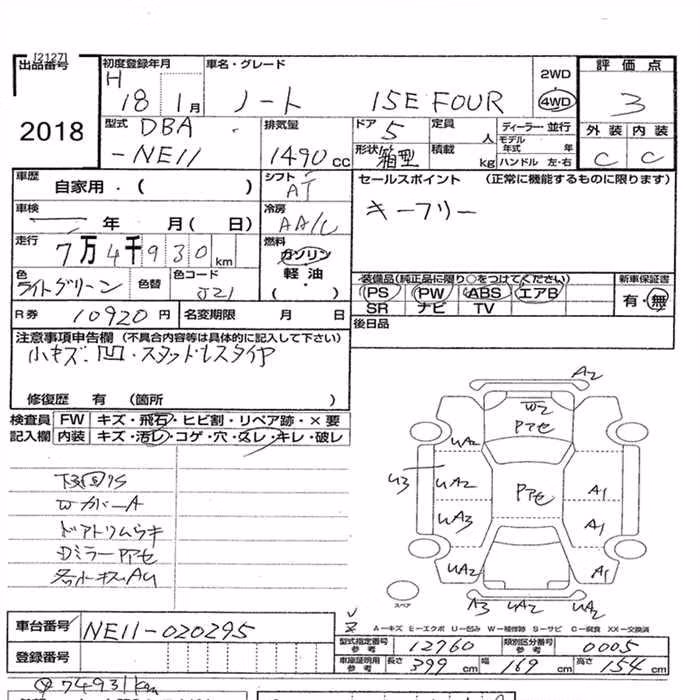 [2127]
出品番号 初度登録年月 車名・グレード 2WD 評価点
H 18 1月 ノート 15E FOUR 4WD 3
2018 型式 DBA 排気量 ドア 5 定員 人 ディーラー・並行 外装 内装
-NE11 1490 CC 形状 箱型 積載 kg モデル年式 年 ハンドル 左・右 C C
車歴 自家用・( ) シフト AT セールスポイント (正常に機能するものに限ります)
車検 年 月( 日) 冷房 AA/C キーフリー
走行 7万4千930km 燃料 ガソリン
色 ライトグリーン 色替 色コード J21 軽油・( ) 装備品(純正品に限り○をつけてください) 新車保証書
PS PW ABS エアB 有・無
SR ナビ TV
R券 10920円 名変期限 月 日 後日品
注意事項申告欄 (不具合内容等は具体的に記入して下さい)
小キズ・凹・スタッドレスタイヤ
修復歴 有 (箇所 )
検査員 FW キズ・飛石・ヒビ割・リペア跡・×要
記入欄 内装 キズ・汚レ・コゲ・穴・スレ・キレ・破レ
A2
W2
Pアセ
UA2
U3 UA2 Pアセ A1
UA3 A1
UA2 A1
A3 UA2 UA2
下回りS
WカバーA
ドアトリムウキ
DミラーPアセ
各小キズAU
スペア
A-キズ E-エクボ U-凹み W-補修跡 S-サビ C-腐食 XX-交換済
車台番号 NE11-020295
型式指定番号 参考 12760 類別区分番号 参考 0005
登録番号
車庫証明用 参考 長さ 399 cm 幅 169 cm 高さ 154 cm
74931km